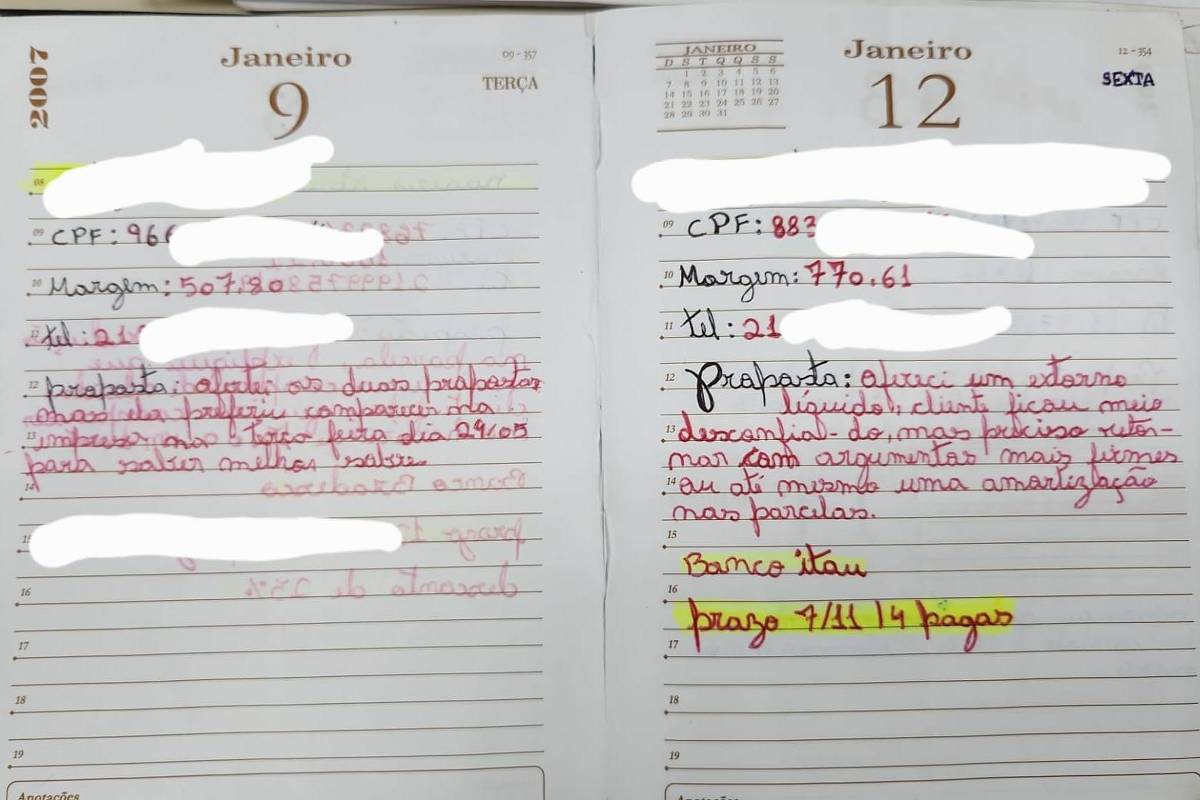 2007
Janeiro
09 - 357
9
TERÇA
08
09 CPF: 966
10 Margem: 507,80
11 tel: 21
12 proposta: oferti as duas propostas
mas ela preferiu comparecer na
13 impresa na terça feira dia 29/05
para saber melhor sobre.
14
15
16
17
18
19
Anotações
JANEIRO
D S T Q Q S S
1 2 3 4 5 6
7 8 9 10 11 12 13
14 15 16 17 18 19 20
21 22 23 24 25 26 27
28 29 30 31
Janeiro
12 - 354
12
SEXTA
09 CPF: 883
10 Margem: 770.61
11 tel: 21
12 Proposta: ofereci um extorno
líquido, cliente ficou meio
13 desconfia-do, mas preciso retor-
nar com argumentos mais firmes
14 ou até mesmo uma amortização
nas parcelas.
15
Banco itau
16
prazo 7/11 / 4 pagas
17
18
19
Anotações